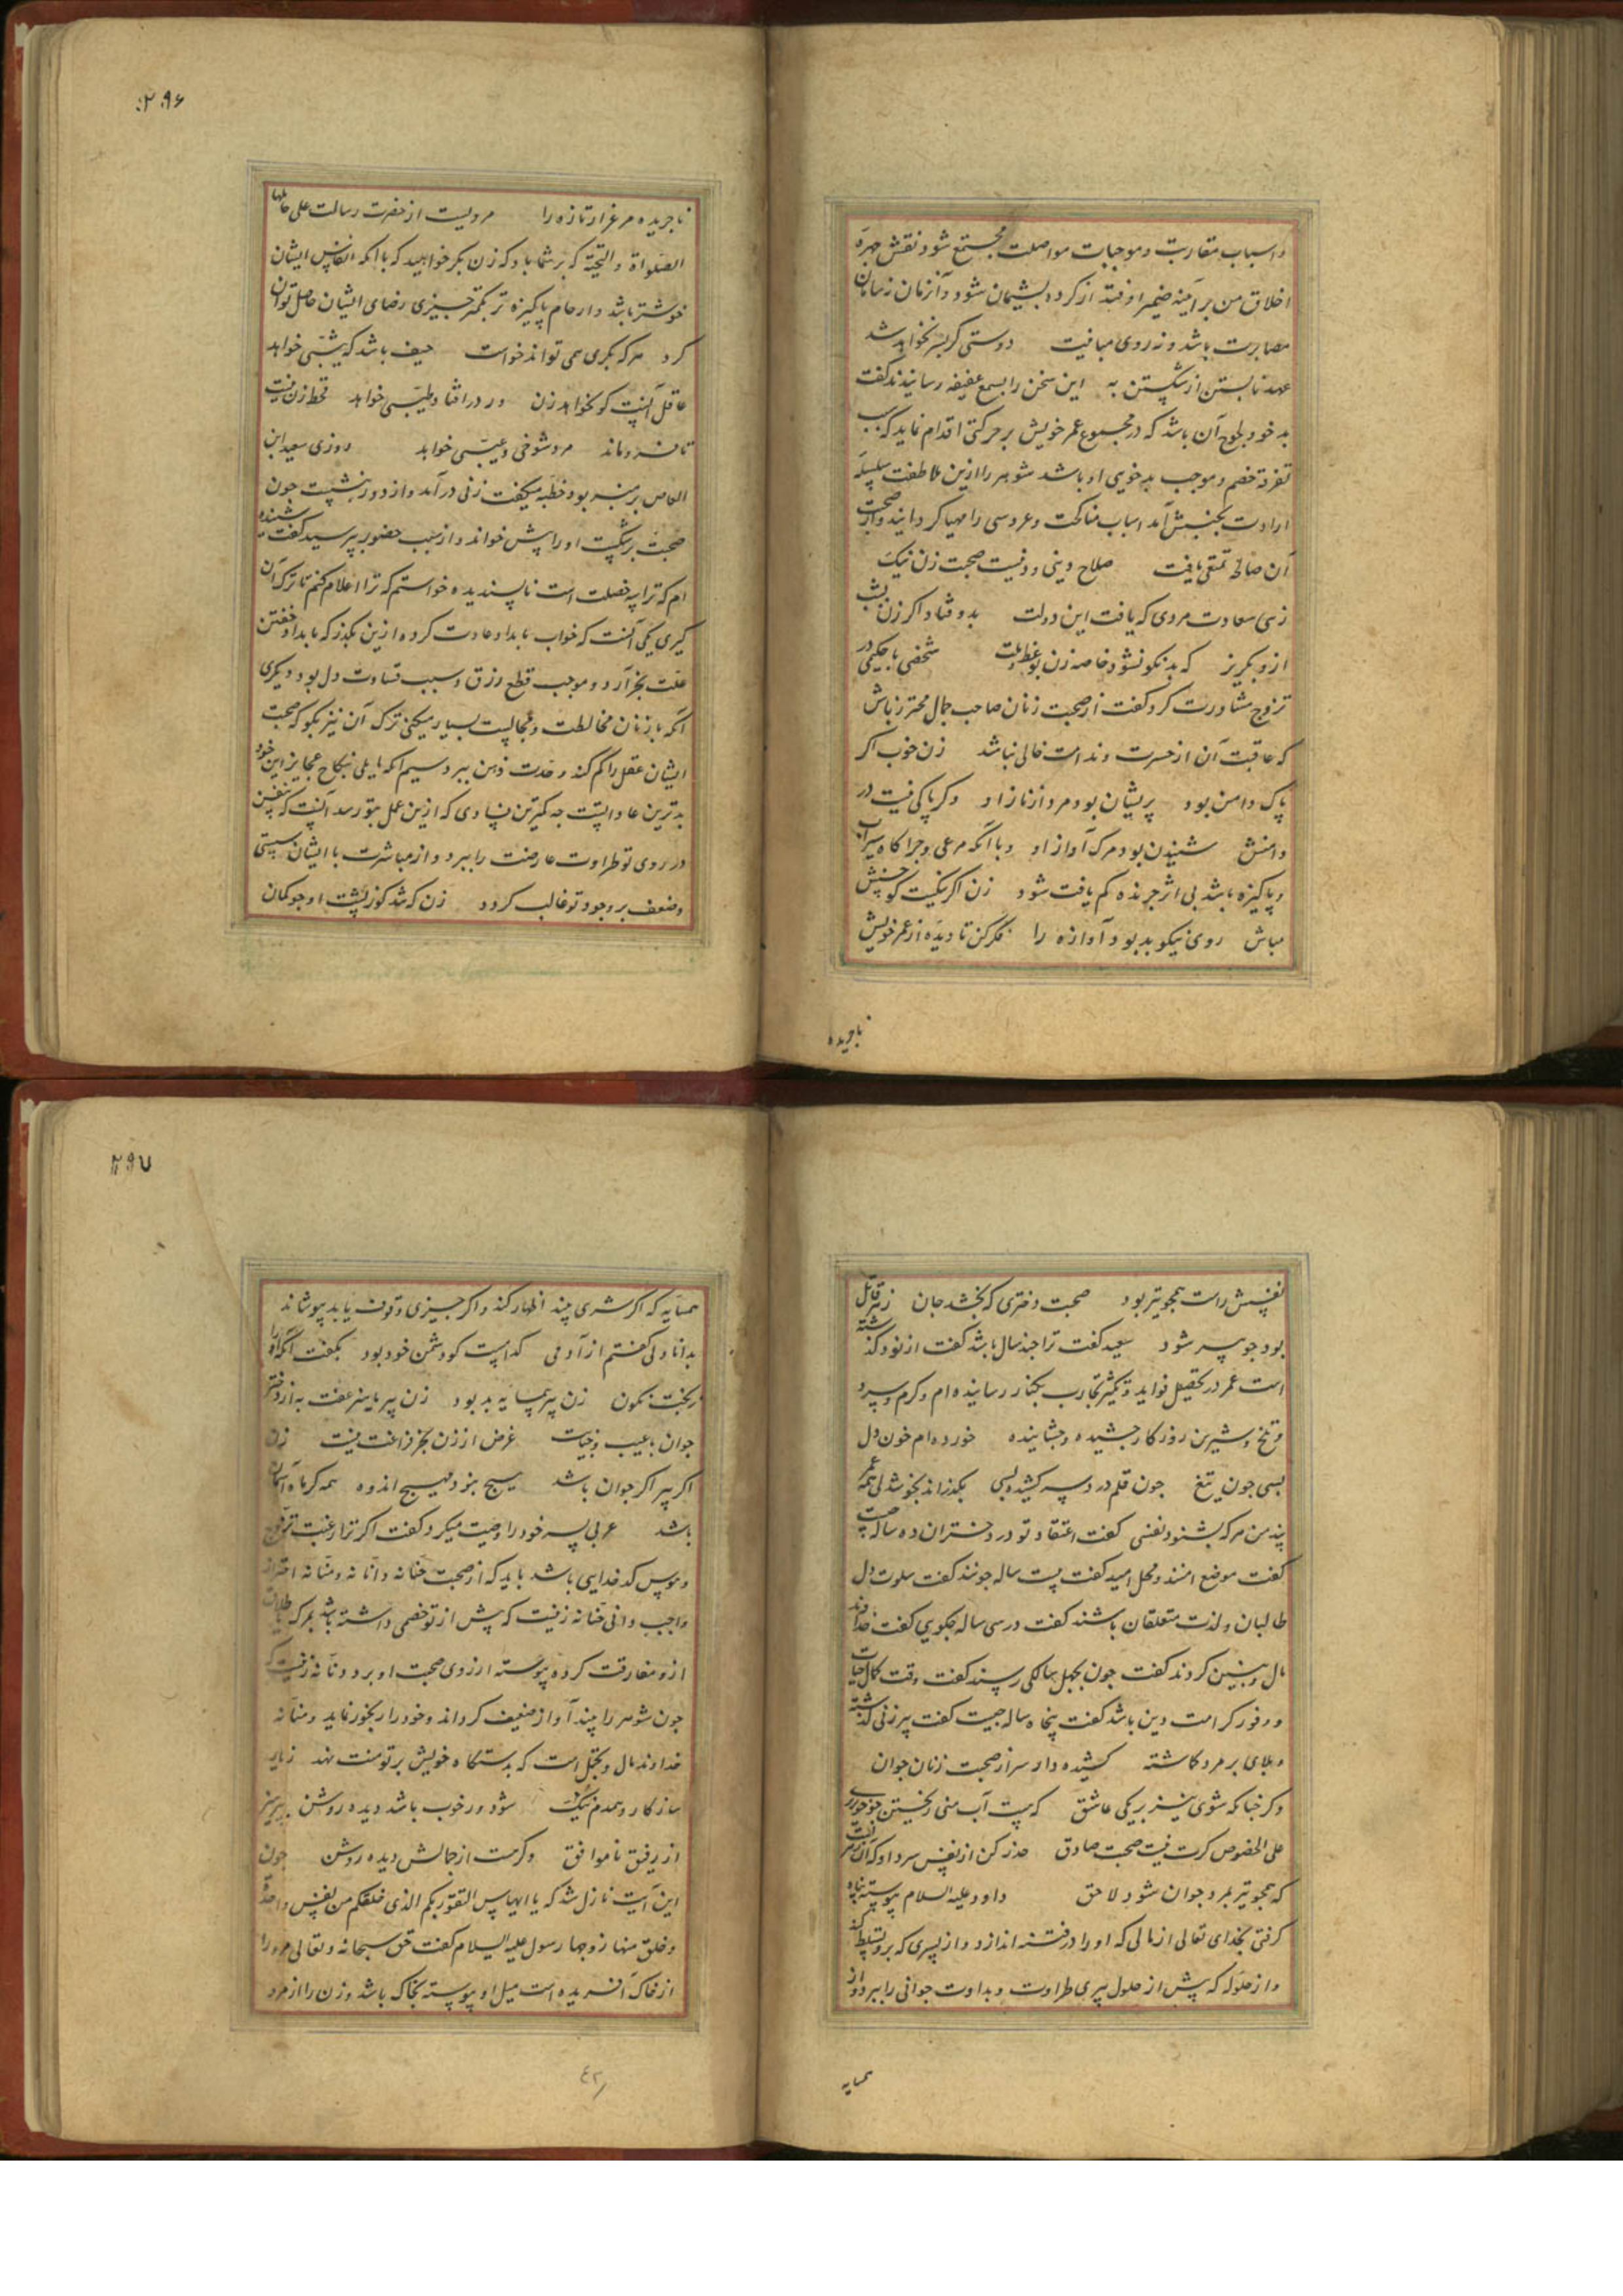 و اسباب مقاربت و موجبات مواصلت مجتمع شود نقش چهره
اخلاق من بر آینه ضمیر او فتد از کرده پشیمان شود و آن زمان نه سامان
مصابرت باشد و نه روی مباینت دوستی کر بسر نخواهد شد
عهد نابستن از شکستن به این سخن را بسمع عفیفه رسانیدند کفت
بدخو و لجوج آن باشد که در مجموع عمر خویش بر حرکتی اقدام نماید که سبب
تفرقه خصم و موجب بدخویی او باشد شوهر را ازین ملاطفت سلسله
ارادت بجنبش آمد اسباب مناکحت و عروسی را مهیا کردانید و از صحبت
آن صالحه تمتعی یافت صلاح دینی و دنیست صحبت زن نیک
زهی سعادت مردی که یافت این دولت بدو فتاد اکر زن
ازو بکریز که بد نکو نشود خاصه زن شخصی با حکیمی در
تزوج مشاورت کرد کفت از صحبت زنان صاحب جمال محترز باش
که عاقبت آن از حسرت و ندامت خالی نباشد زن خوب اکر
پاک دامن بود پریشان بود مرد از ناز او وکر پاکی نیست در
دامنش شنیدن بود مرک آواز او و با آنکه مرعی و چراکاه سیراب
و پاکیزه باشد بی اثر چرنده کم یافت شود زن اکر نیکست کو خنش
مباش روی نیکو بد بود آوازه را فکر کن تا دیده از عمر خویش
ناچریده
۲۹۶
ناچریده مرغزار تازه را مرویست از حضرت رسالت علی قائلها
الصلواة و التحیة که بر شما باد که زن بکر خواهید که با آنکه انفاس ایشان
خوشتر باشد و ارحام پاکیزه تر بکمتر چیزی رضای ایشان حاصل توان
کرد هر که بکری همی تواند خواست حیف باشد که ثیبی خواهد
عاقل آنست کو نخواهد زن ور در افتاد و طیبی خواهد قحط زن نیست
تا فروماند مرد شوخی و عیبی خواهد روزی سعید ابن
العاص بر منبر بود خطبه میکفت زنی درآمد و از دور بنشست چون
صحبت برشکست او را پیش خواند و از سبب حضور پرسید کفت شنیده
ام که ترا سه خصلت است ناپسندیده خواستم که ترا اعلام کنم تا ترک آن
کیری یکی آنست که خواب بامداد عادت کرده ازین بکذر که بامداد خفتن
علت بخر آرد و موجب قطع رزق و سبب قساوت دل بود دیکری
آنکه با زنان مخالطت و مجالست بسیار میکنی ترک آن نیز بکو که صحبت
ایشان عقل را کم کند و حدت ذهن ببرد سیم آنکه مایلی بنکاح عجایز این خود
بدترین عاداتست چه کمترین فسادی که ازین عمل بتو رسد آنست که بنفس
در روی تو طراوت عارضت را ببرد و از مباشرت با ایشان سستی
و ضعف بر وجود تو غالب کردد زن که شد کوز پشت او چو کمان
نفسش راست همچو تیر بود صحبت دختری که بخشد جان زهر قاتل
بود چو پیر شود سعید کفت ترا چند سال باشد کفت از نود کذشته
است عمر در تحصیل فواید و تکثیر تجارب بکنار رسانیده ام و کرم و سرد
و تلخ و شیرین روزکار چشیده و چشانیده خورده ام خون دل
بسی چون تیغ چون قلم در دو سر کشیده بسی بکذراند بخوشدلی همه عمر
پند من هر که بشنود نفسی کفت اعتقاد تو در دختران ده ساله چیست
کفت موضع امنند و محل امید کفت بیست ساله چونند کفت سلوت دل
طالبان و لذت متعلقان باشند کفت در سی ساله چکویی کفت خداوند
مال و بنین کردند کفت چون بچهل سالکی رسند کفت وقت کمال حیات
و وفور کرامت و دین باشد کفت پنجاه ساله چیست کفت پیرزنی کذشته
و بلای بر مرد کماشته کشیده دار سر از صحبت زنان جوان
وکر چنانکه شوی نیز بر یکی عاشق که هست آب منی ریختن چو خون
علی الخصوص کرت نیست صحبت صادق حذر کن از نفس سرد او که آن زهر است
که همچو تیر بمرد جوان شود لاحق داود علیه السلام پیوسته پناه
کرفتی بخدای تعالی از مالی که او را در فتنه اندازد و از پسری که برو تسلط کند
و از حلیله که پیش از حلول پیری طراوت و بداوت جوانی را ببرد و از
همسایه
۲۹۷
همسایه که اکر شری بیند اظهار کند و اکر چیزی وقوف یابد بپوشاند
بدانا دلی کفتم از آدمی کدامست کو دشمن خود بود بکفت آنکه او را
ز بخت نکون زن پیر همسایه بد بود زن پیر با عفت به از دختر
جوان با عیب و خیانت غرض از زن بجز فراغت نیست زن
اکر پیر اکر جوان باشد هیچ نبود هیچ اندوه همه کر ماه آسمان
باشد عربی پسر خود را وصیت میکرد کفت اکر ترا رغبت تزوج
و هوس کدخدایی باشد باید که از صحبت حنانه و انانه و منانه احتراز
واجب دانی حنانه زنیست که پیش از تو خصمی داشته باشد بمرک یا طلاق
ازو مفارقت کرده پیوسته ارزوی صحبت او برد و انانه زنیست که
چون شوهر را بیند آواز ضعیف کرداند و خود را رنجور نماید و منانه
خداوند مال و تجمل است که بدستکاه خویش بر تو منت نهد زیار
سازکار و همدم نیک شود ور خوب باشد دیده روشن بپرهیز
از رفیق ناموافق وکر هست از جمالش دیده روشن چون
این آیت نازل شد که یا ایها الناس اتقوا ربکم الذی خلقکم من نفس واحدة
و خلق منها زوجها رسول علیه السلام کفت حق سبحانه و تعالی مرد را
از خاک آفریده است میل او پیوسته بخاک باشد و زن را از مرد